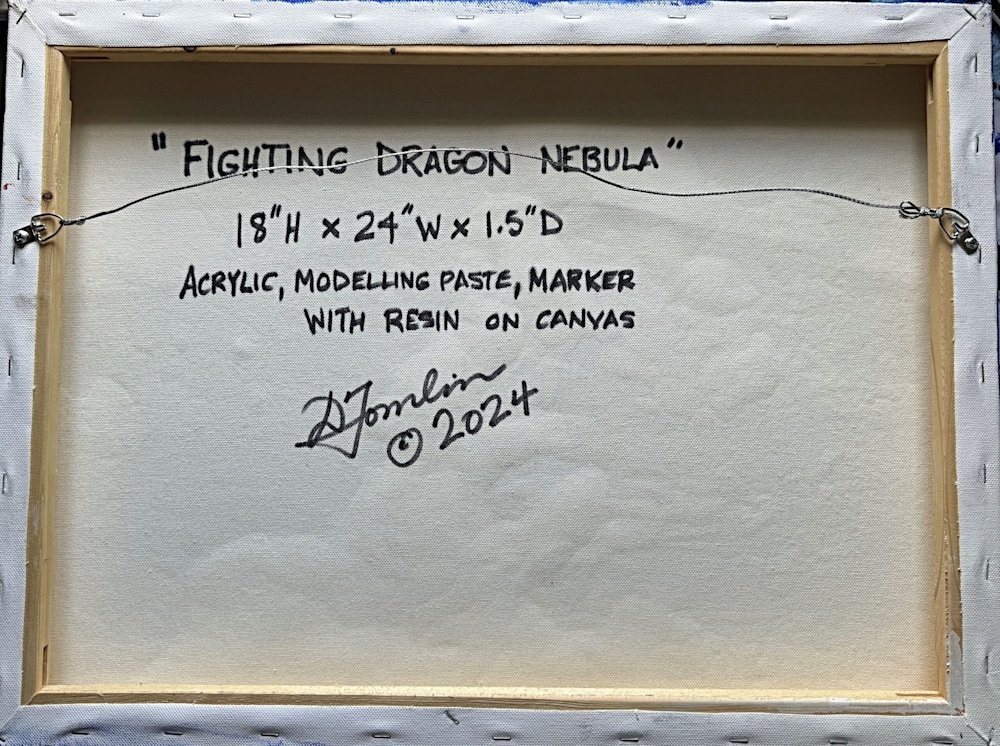 "FIGHTING DRAGON NEBULA"
18"H x 24"W x 1.5"D
ACRYLIC, MODELLING PASTE, MARKER
WITH RESIN ON CANVAS
DTomlin
© 2024